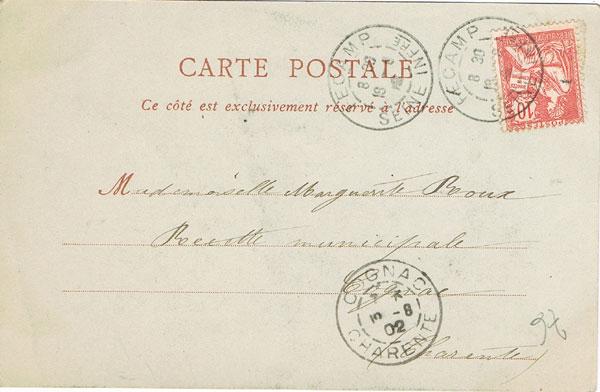 CARTE POSTALE
Ce côté est exclusivement réservé à l'adresse
FECAMP
8 30
SEINE INFRE
FECAMP
8 30
SEINE INFRE
10
POSTES
Mademoiselle Marguerite Roux
Recette municipale
Cognac
(Charente)
COGNAC
5 -8
02
CHARENTE